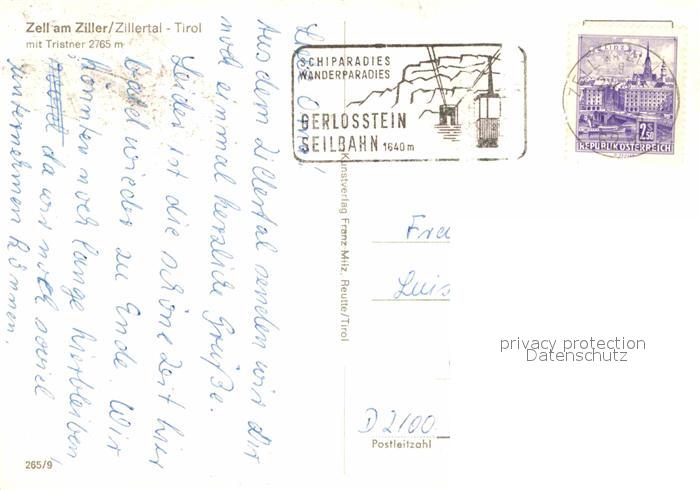 Zell am Ziller/Zillertal - Tirol
mit Tristner 2765 m
SCHIPARADIES
WANDERPARADIES
GERLOSSTEIN
SEILBAHN 1640m
2.50
REPUBLIK ÖSTERREICH
Liebe Oma!
Aus dem Zillertal senden wir Dir
noch einmal herzliche Grüße.
Leider ist die schöne Zeit hier
bald wieder zu Ende. Wir
könnten noch lange hierbleiben,
da wir noch soviel
unternehmen können.
Kunstverlag Franz Milz, Reutte/Tirol
Fra
Luis
privacy protection
Datenschutz
D 2100
Postleitzahl
265/9